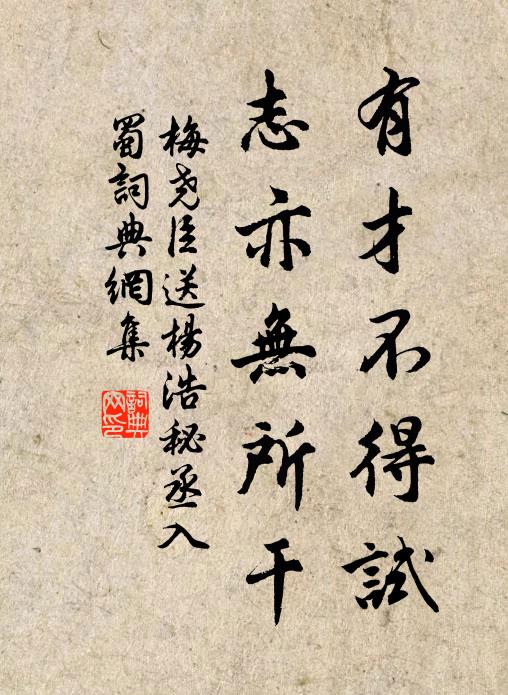 有才不得試
志亦無所干
梅堯臣送楊浩秘丞入
蜀詞典網集
詞典
网印